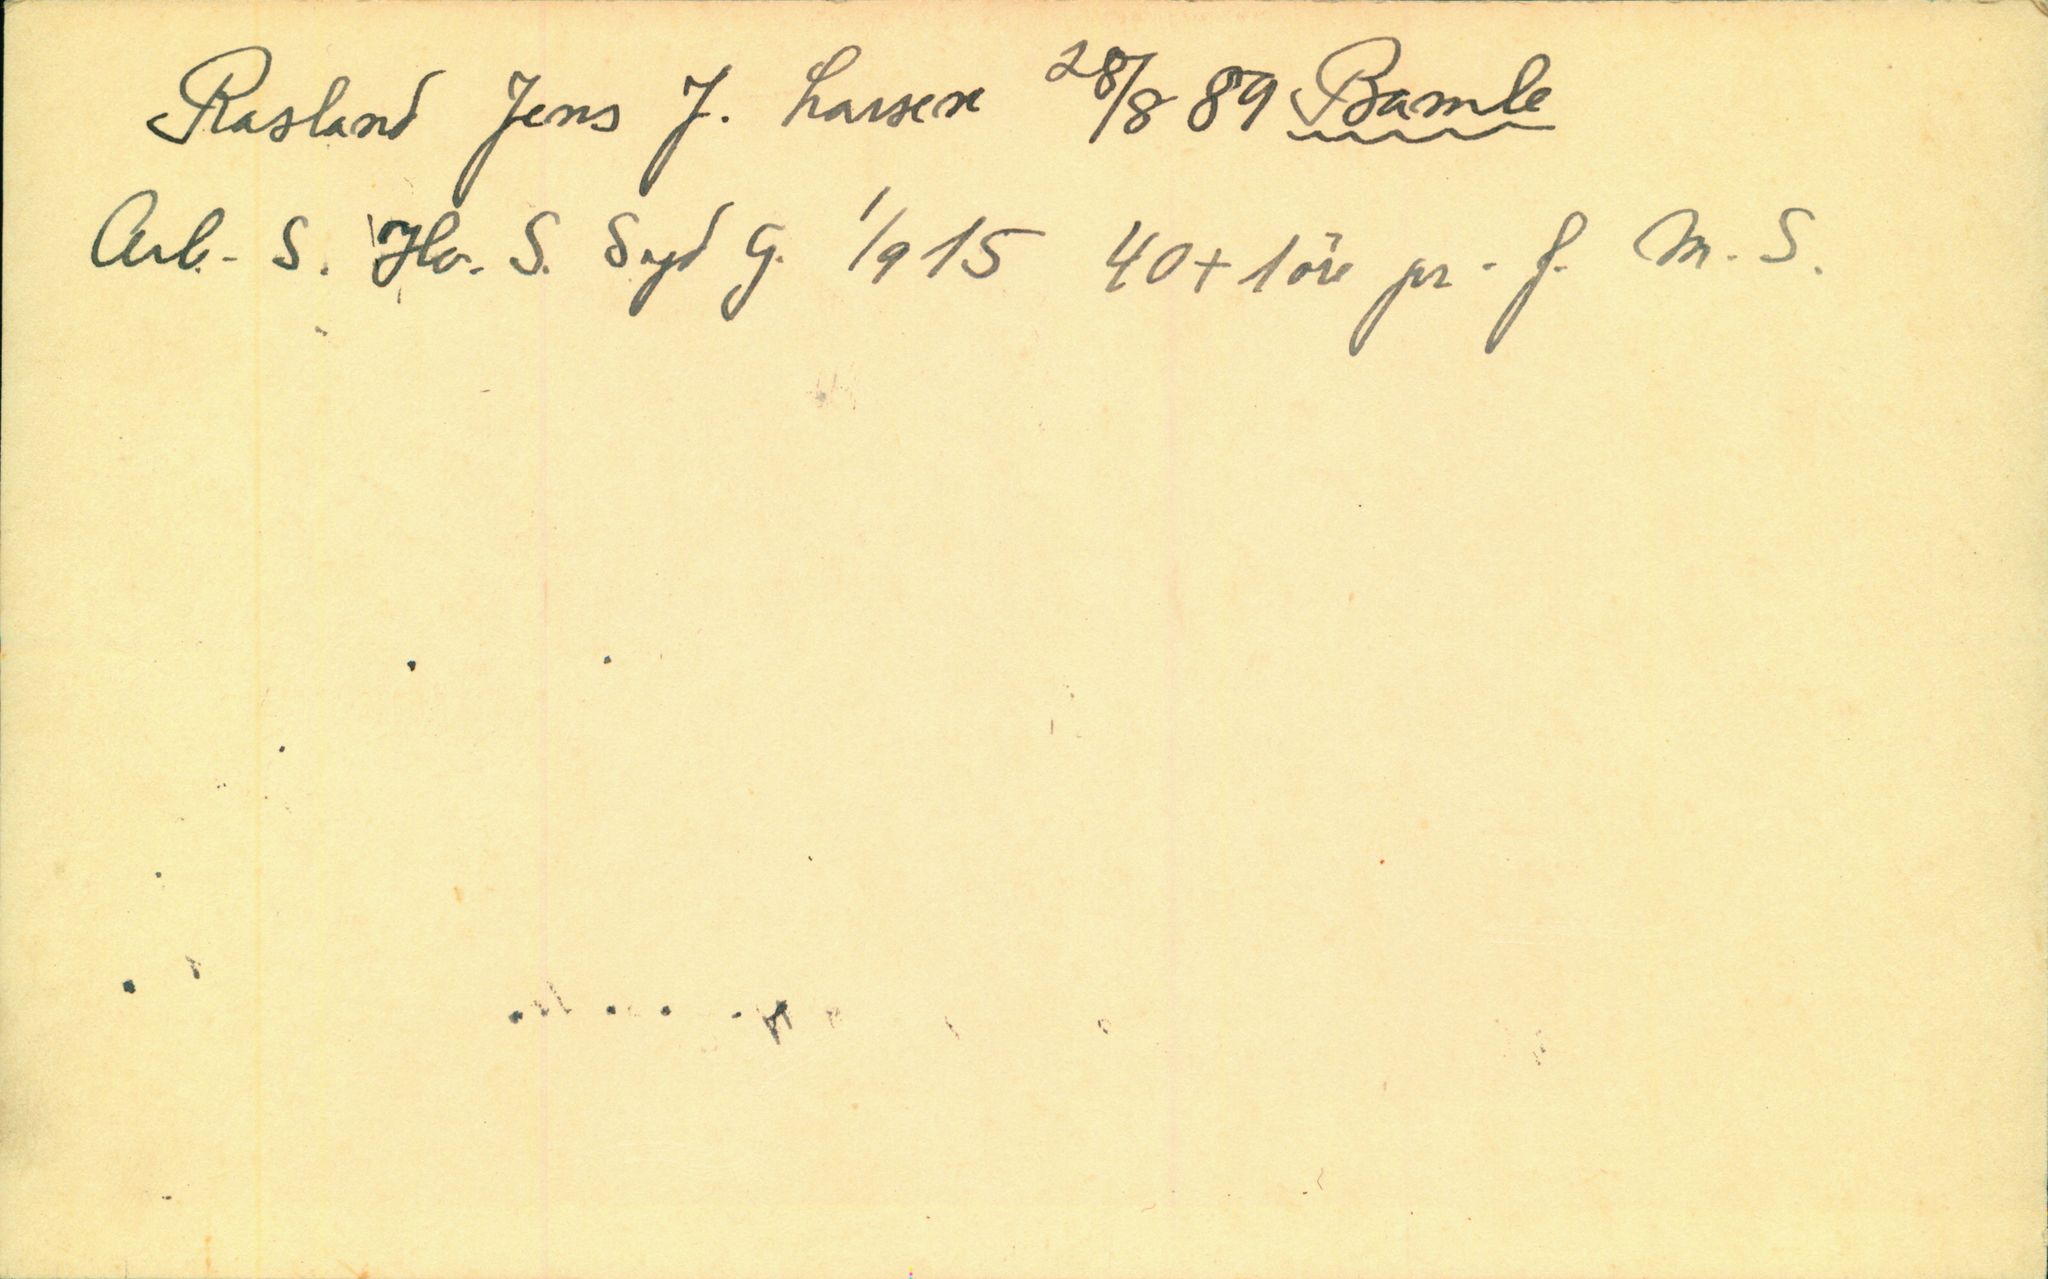 Rasland Jens J. Larsen 28/8 89 Bamle
Arb. S. Ho. S. Syd G. 1/9 15 40+1öre pr. f. M. S.